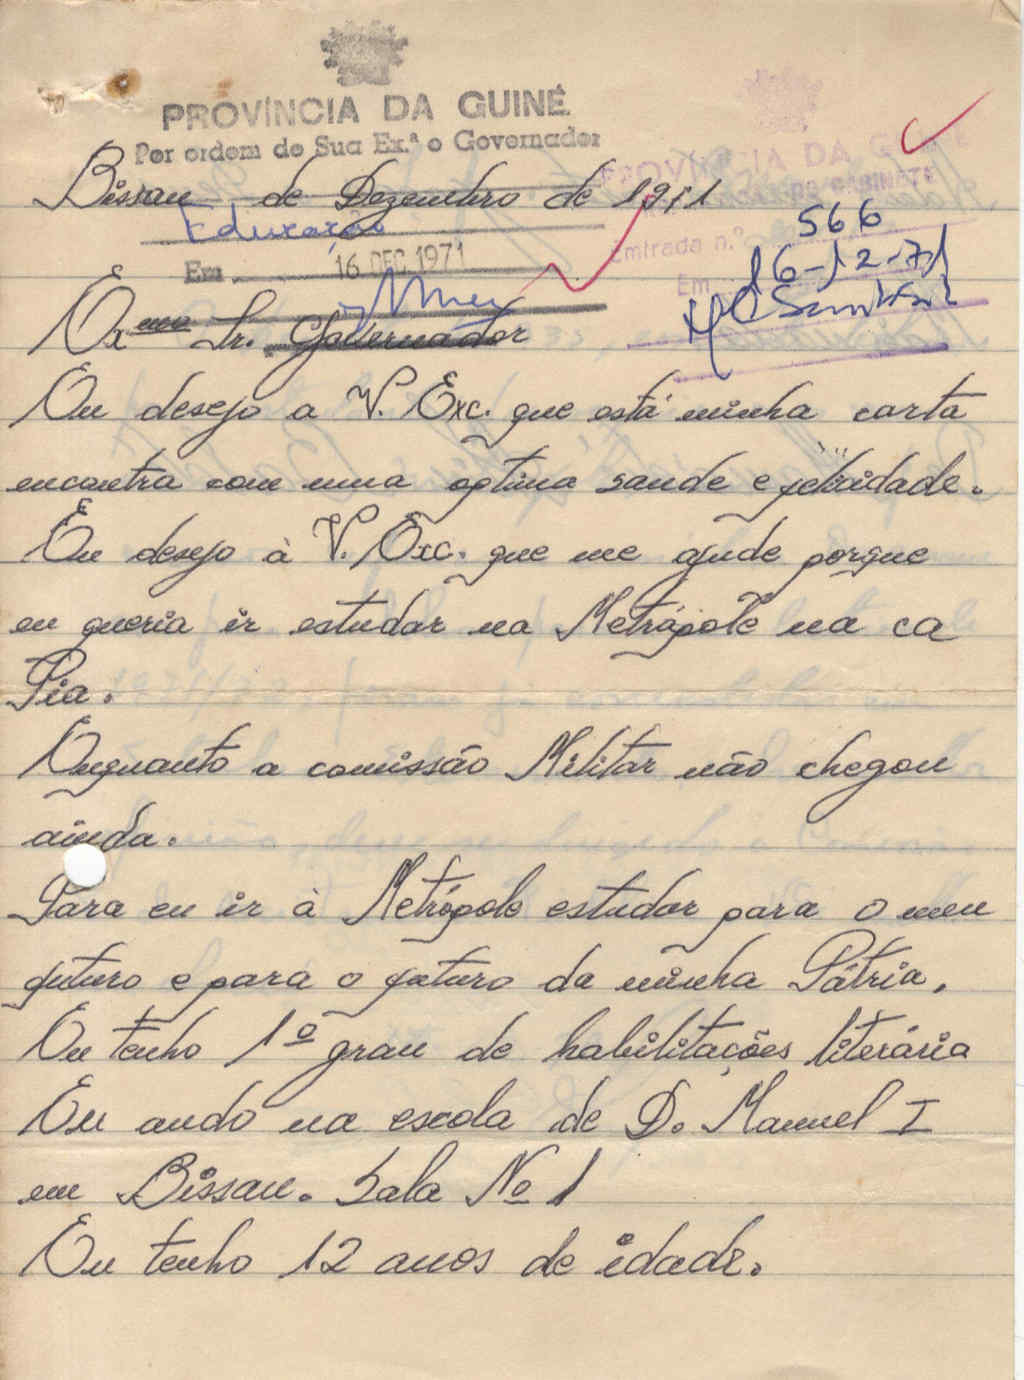 PROVÍNCIA DA GUINÉ
Por ordem de Sua Ex.ª o Governador
PROVÍNCIA DA GUINÉ
GABINETE
Bissau de Dezembro de 1971
Educação
Entrada n.º 566
Em 16 DEC. 1971
Em 16-12-71
Exmo Sr. Governador
Eu desejo a V. Exc. que está minha carta
encontra com uma optima saude e felicidade.
Eu desejo à V. Exc. que me ajude porque
eu queria ir estudar na Metrópole na ca
Pia.
Enquanto a comissão Militar não chegou
ainda.
Para eu ir à Metrópole estudar para o meu
futuro e para o futuro da minha Pátria.
Eu tenho 1º grau de habilitações literária
Eu ando na escola de D. Manuel I
em Bissau. Sala Nº 1
Eu tenho 12 anos de idade.